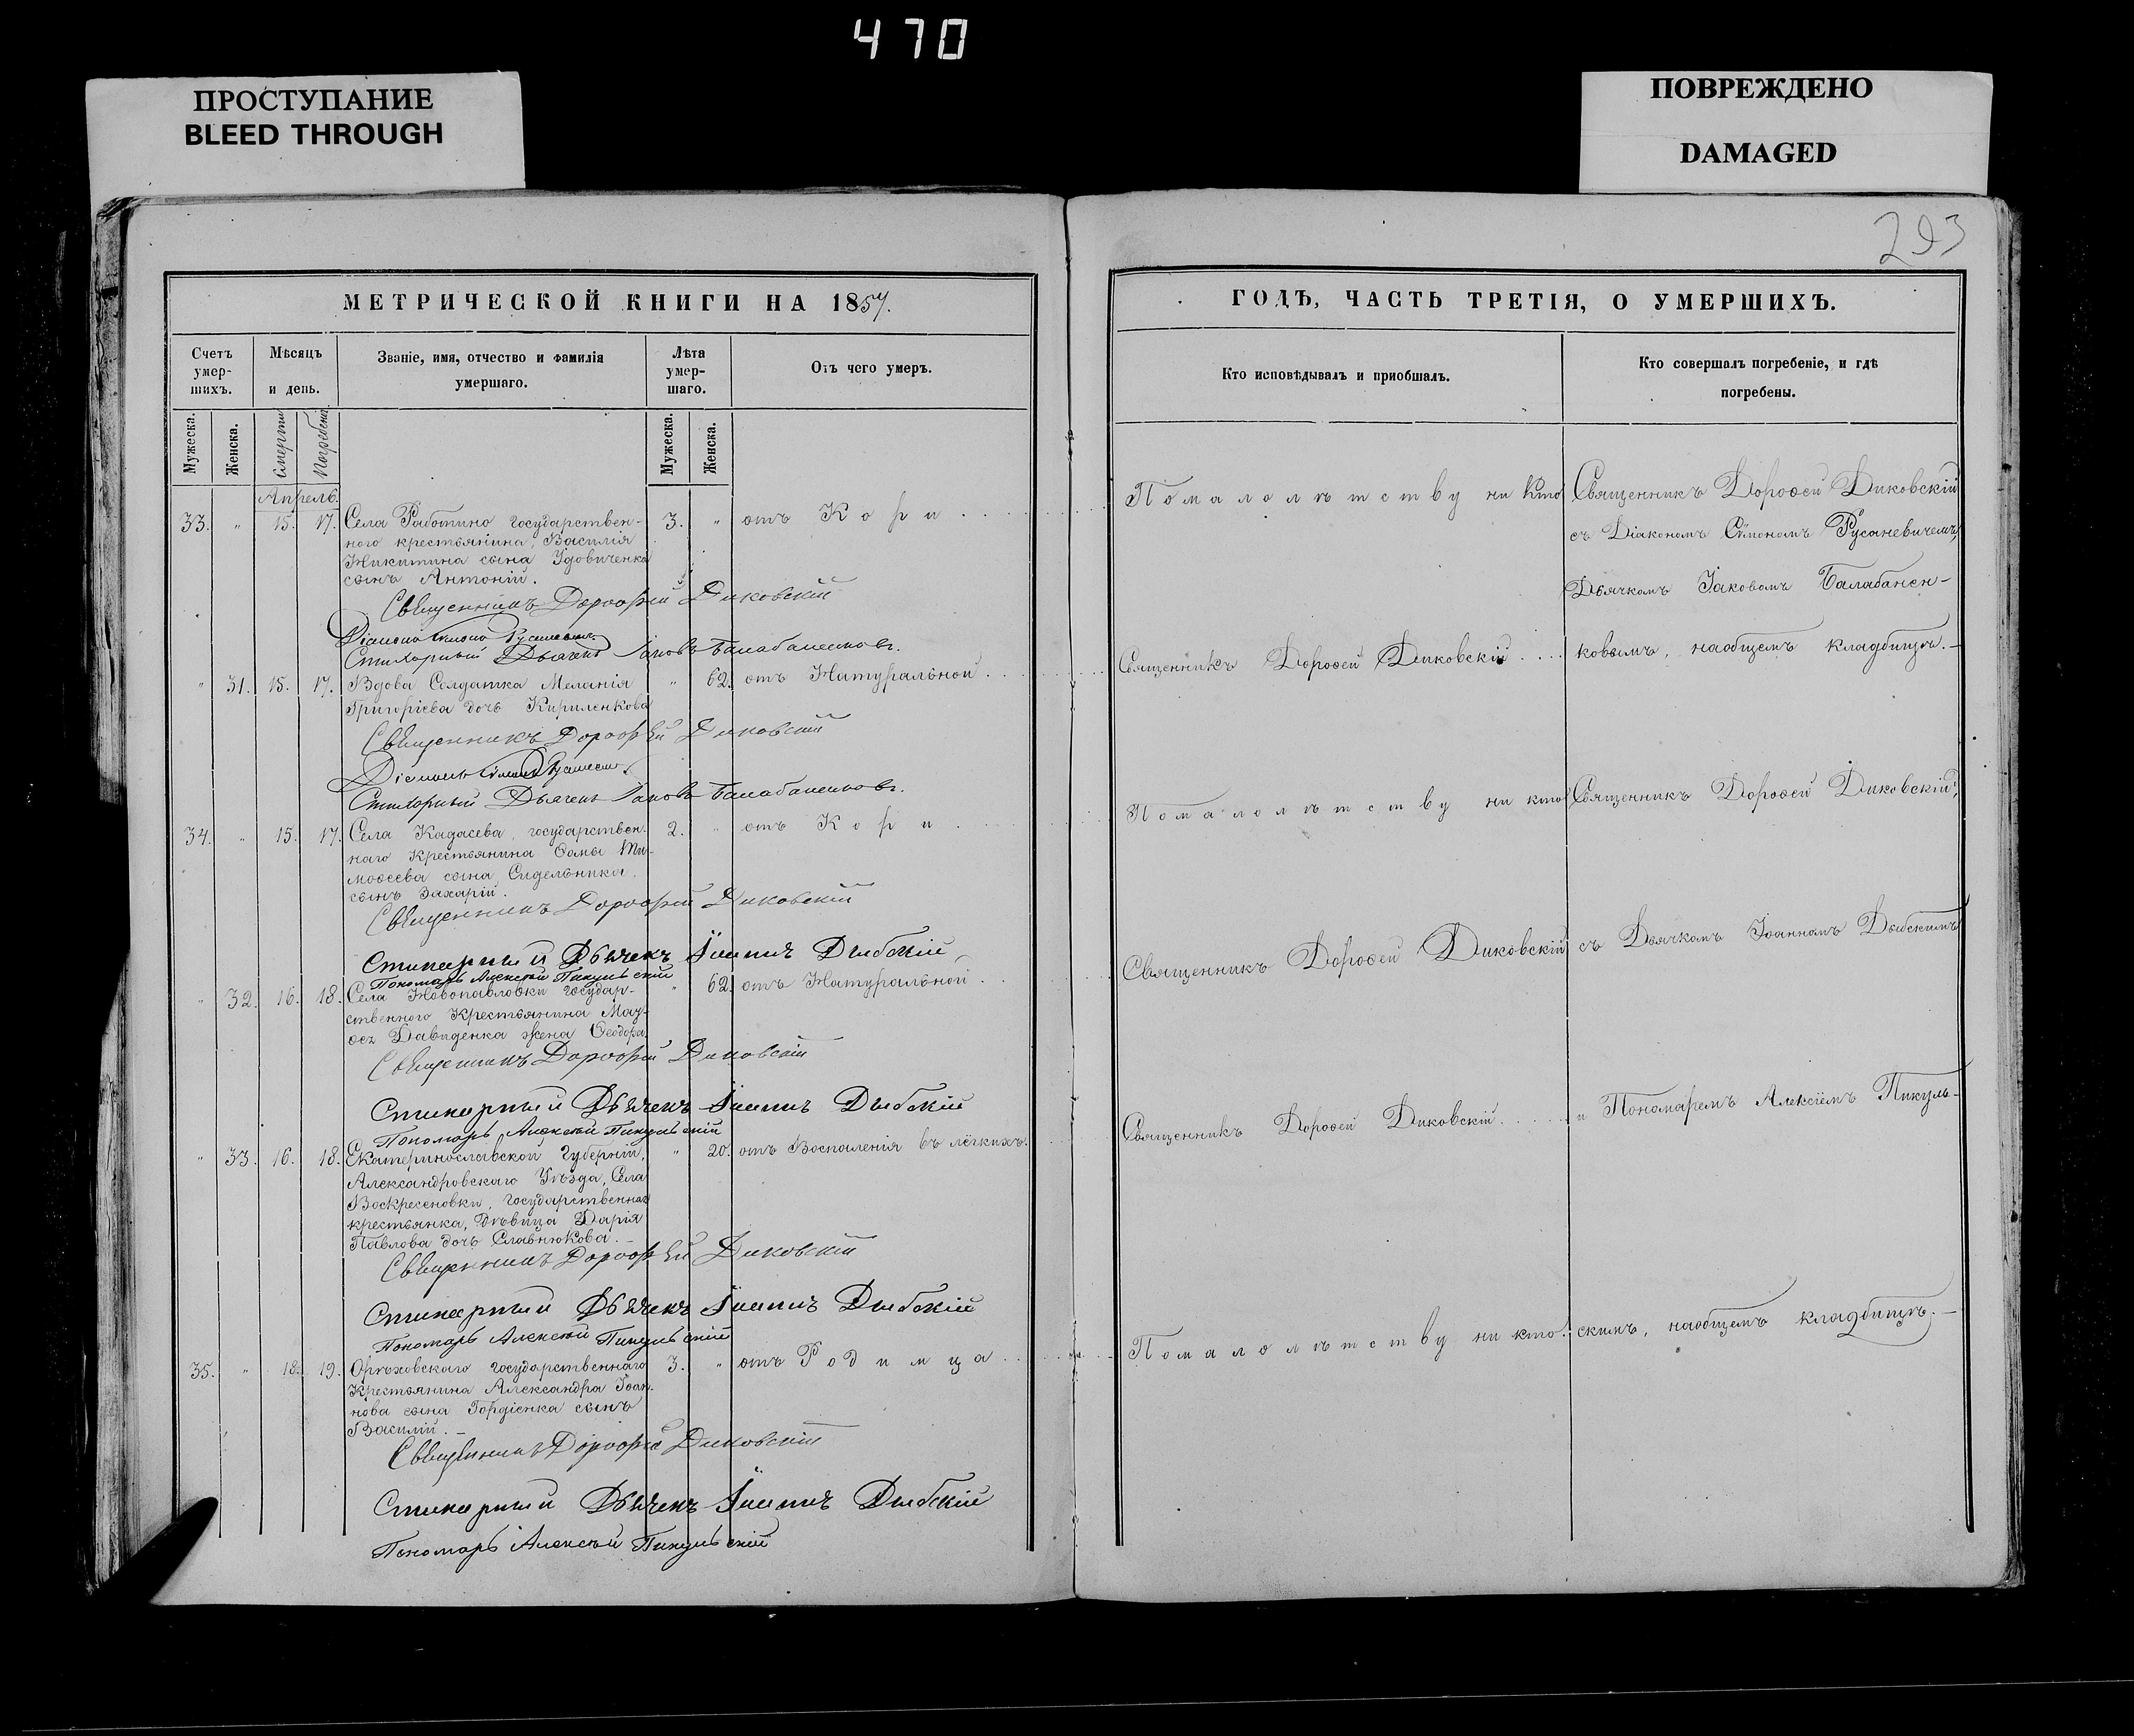 470
ПРОСТУПАНИЕ
BLEED THROUGH
ПОВРЕЖДЕНО
DAMAGED
293
МЕТРИЧЕСКОЙ КНИГИ НА 1857.
Счетъ умер-шихъ.
Мѣсяцъ и день.
Званіе, имя, отчество и фамилія умершаго.
Лѣта умер-шаго.
Отъ чего умеръ.
Мужеска.
Женска.
Смерти
Погребенія
Мужеска.
Женска.
Апрель.
33. " 15. 17. Села Работино государствен- 3. " отъ Кори
ного крестьянина, Василія
Никитина сына Удовиченка
сынъ Антоній.
Священникъ Дорофей Диковскій
Стихарный Дьячекъ Іаковъ Балабаненковъ.
" 31. 15. 17. Вдова Солдатка Меланія " 62. отъ Натуральной
Григоріева дочь Кириленкова
Священникъ Дорофей Диковскій
Стихарный Дьячекъ Іаковъ Балабаненковъ.
34. " 15. 17. Села Кадасева, государствен- 2. " отъ Кори
наго Крестьянина Ѳомы Ти-
моѳеева сына Сидельника,
сынъ Захарій.
Священникъ Дорофей Диковскій
Стихарный Дьячекъ Іоаннъ Дыбскій
Пономарь Алексѣй Пикульскій
" 32. 16. 18. Села Новопавловки государ- " 62. отъ Натуральной
ственного Крестьянина Мат-
ѳея Давиденка жена Ѳеодора
Священникъ Дорофей Диковскій
Стихарный Дьячекъ Іоаннъ Дыбскій
Пономарь Алексѣй Пикульскій
" 33. 16. 18. Екатеринославской Губерніи, " 20. отъ Воспаленія въ лёгкихъ.
Александровскаго Уѣзда, Села
Воскресеновки, государственная
крестьянка, дѣвица Дарія
Павлова дочь Славнюкова.
Священникъ Дорофей Диковскій
Стихарный Дьячекъ Іоаннъ Дыбскій
Пономарь Алексѣй Пикульскій
35. " 18. 19. Орѣховскаго государственнаго 3. " отъ Родимца
Крестьянина Александра Іоан-
нова сына Гордіенка сынъ
Василій.
Священникъ Дорофей Диковскій
Стихарный Дьячекъ Іоаннъ Дыбскій
Пономарь Алексѣй Пикульскій
ГОДЪ, ЧАСТЬ ТРЕТІЯ, О УМЕРШИХЪ.
Кто исповѣдывалъ и пріобшалъ.
Кто совершалъ погребеніе, и гдѣ погребены.
По малолѣтству ни кто
Священникъ Дороѳей Диковскій
По малолѣтству ни кто
Священникъ Дороѳей Диковскій
Священникъ Дороѳей Диковскій
По малолѣтству ни кто.
Священникъ Дороѳей Диковскій
съ Діакономъ Сѵмономъ Русаневичемъ,
Дьячкомъ Іаковомъ Балабанен-
ковымъ, на общемъ кладбищѣ.
Священникъ Дороѳей Диковскій,
съ Дьячкомъ Іоанномъ Дыбскимъ
и Пономаремъ Алексіемъ Пикуль-
скимъ, на общемъ кладбищѣ.